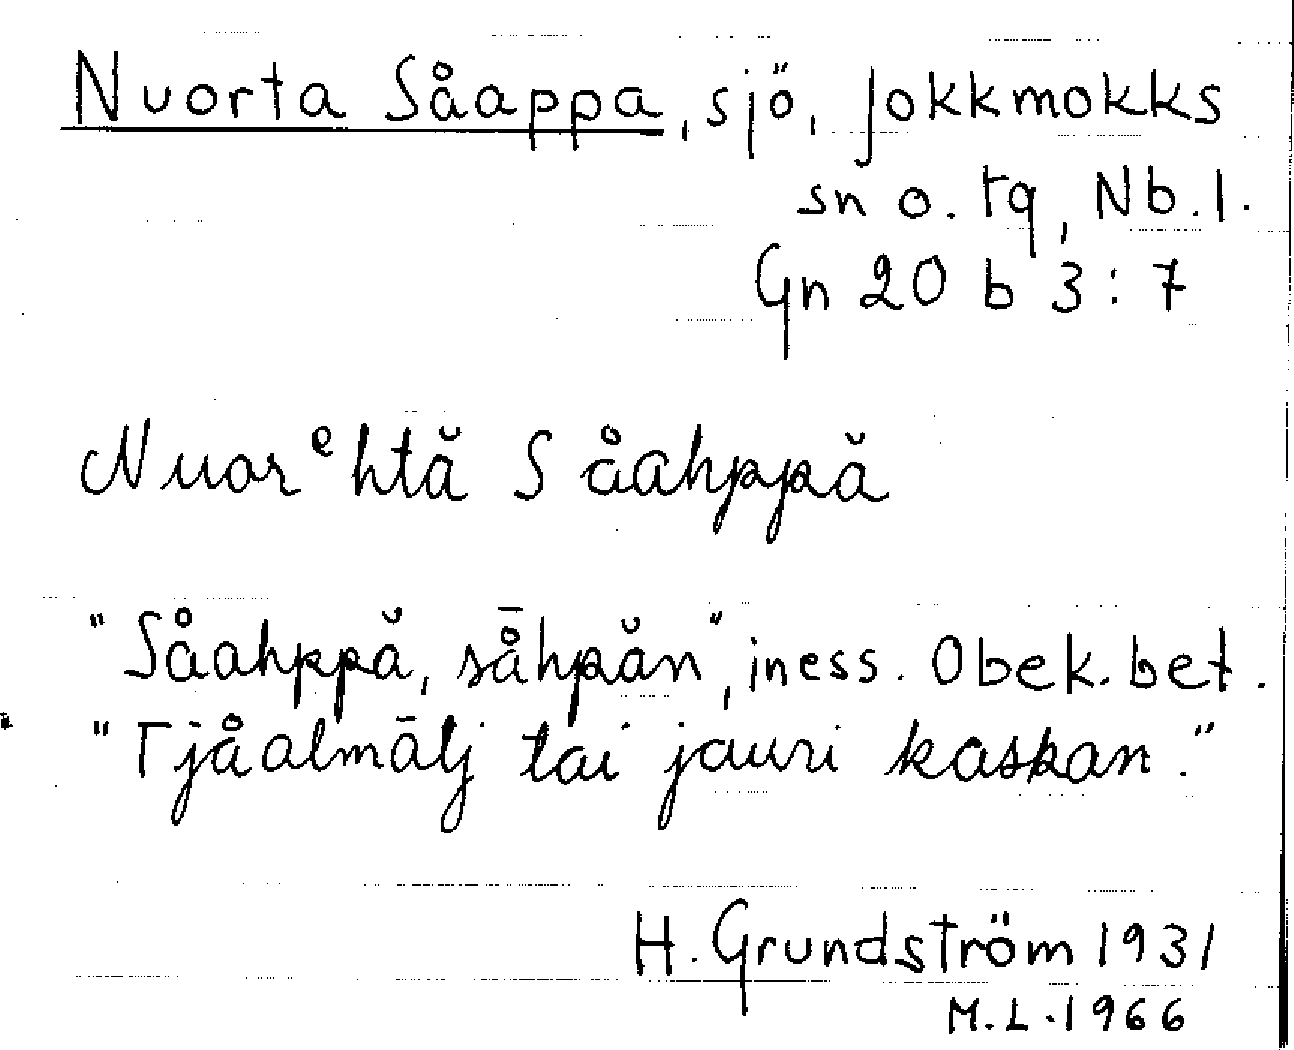 Nuorta Såappa, sjö, Jokkmokks
sn o. tg, Nb. l.
Gn 20 b 3:7
Nuorᵉhtă Såahppă
"Såahppă, så̄hpăn", iness. Obek. bet.
"Tjåalmālj tai jauri kaskan."
H. Grundström 1931
M.L. 1966